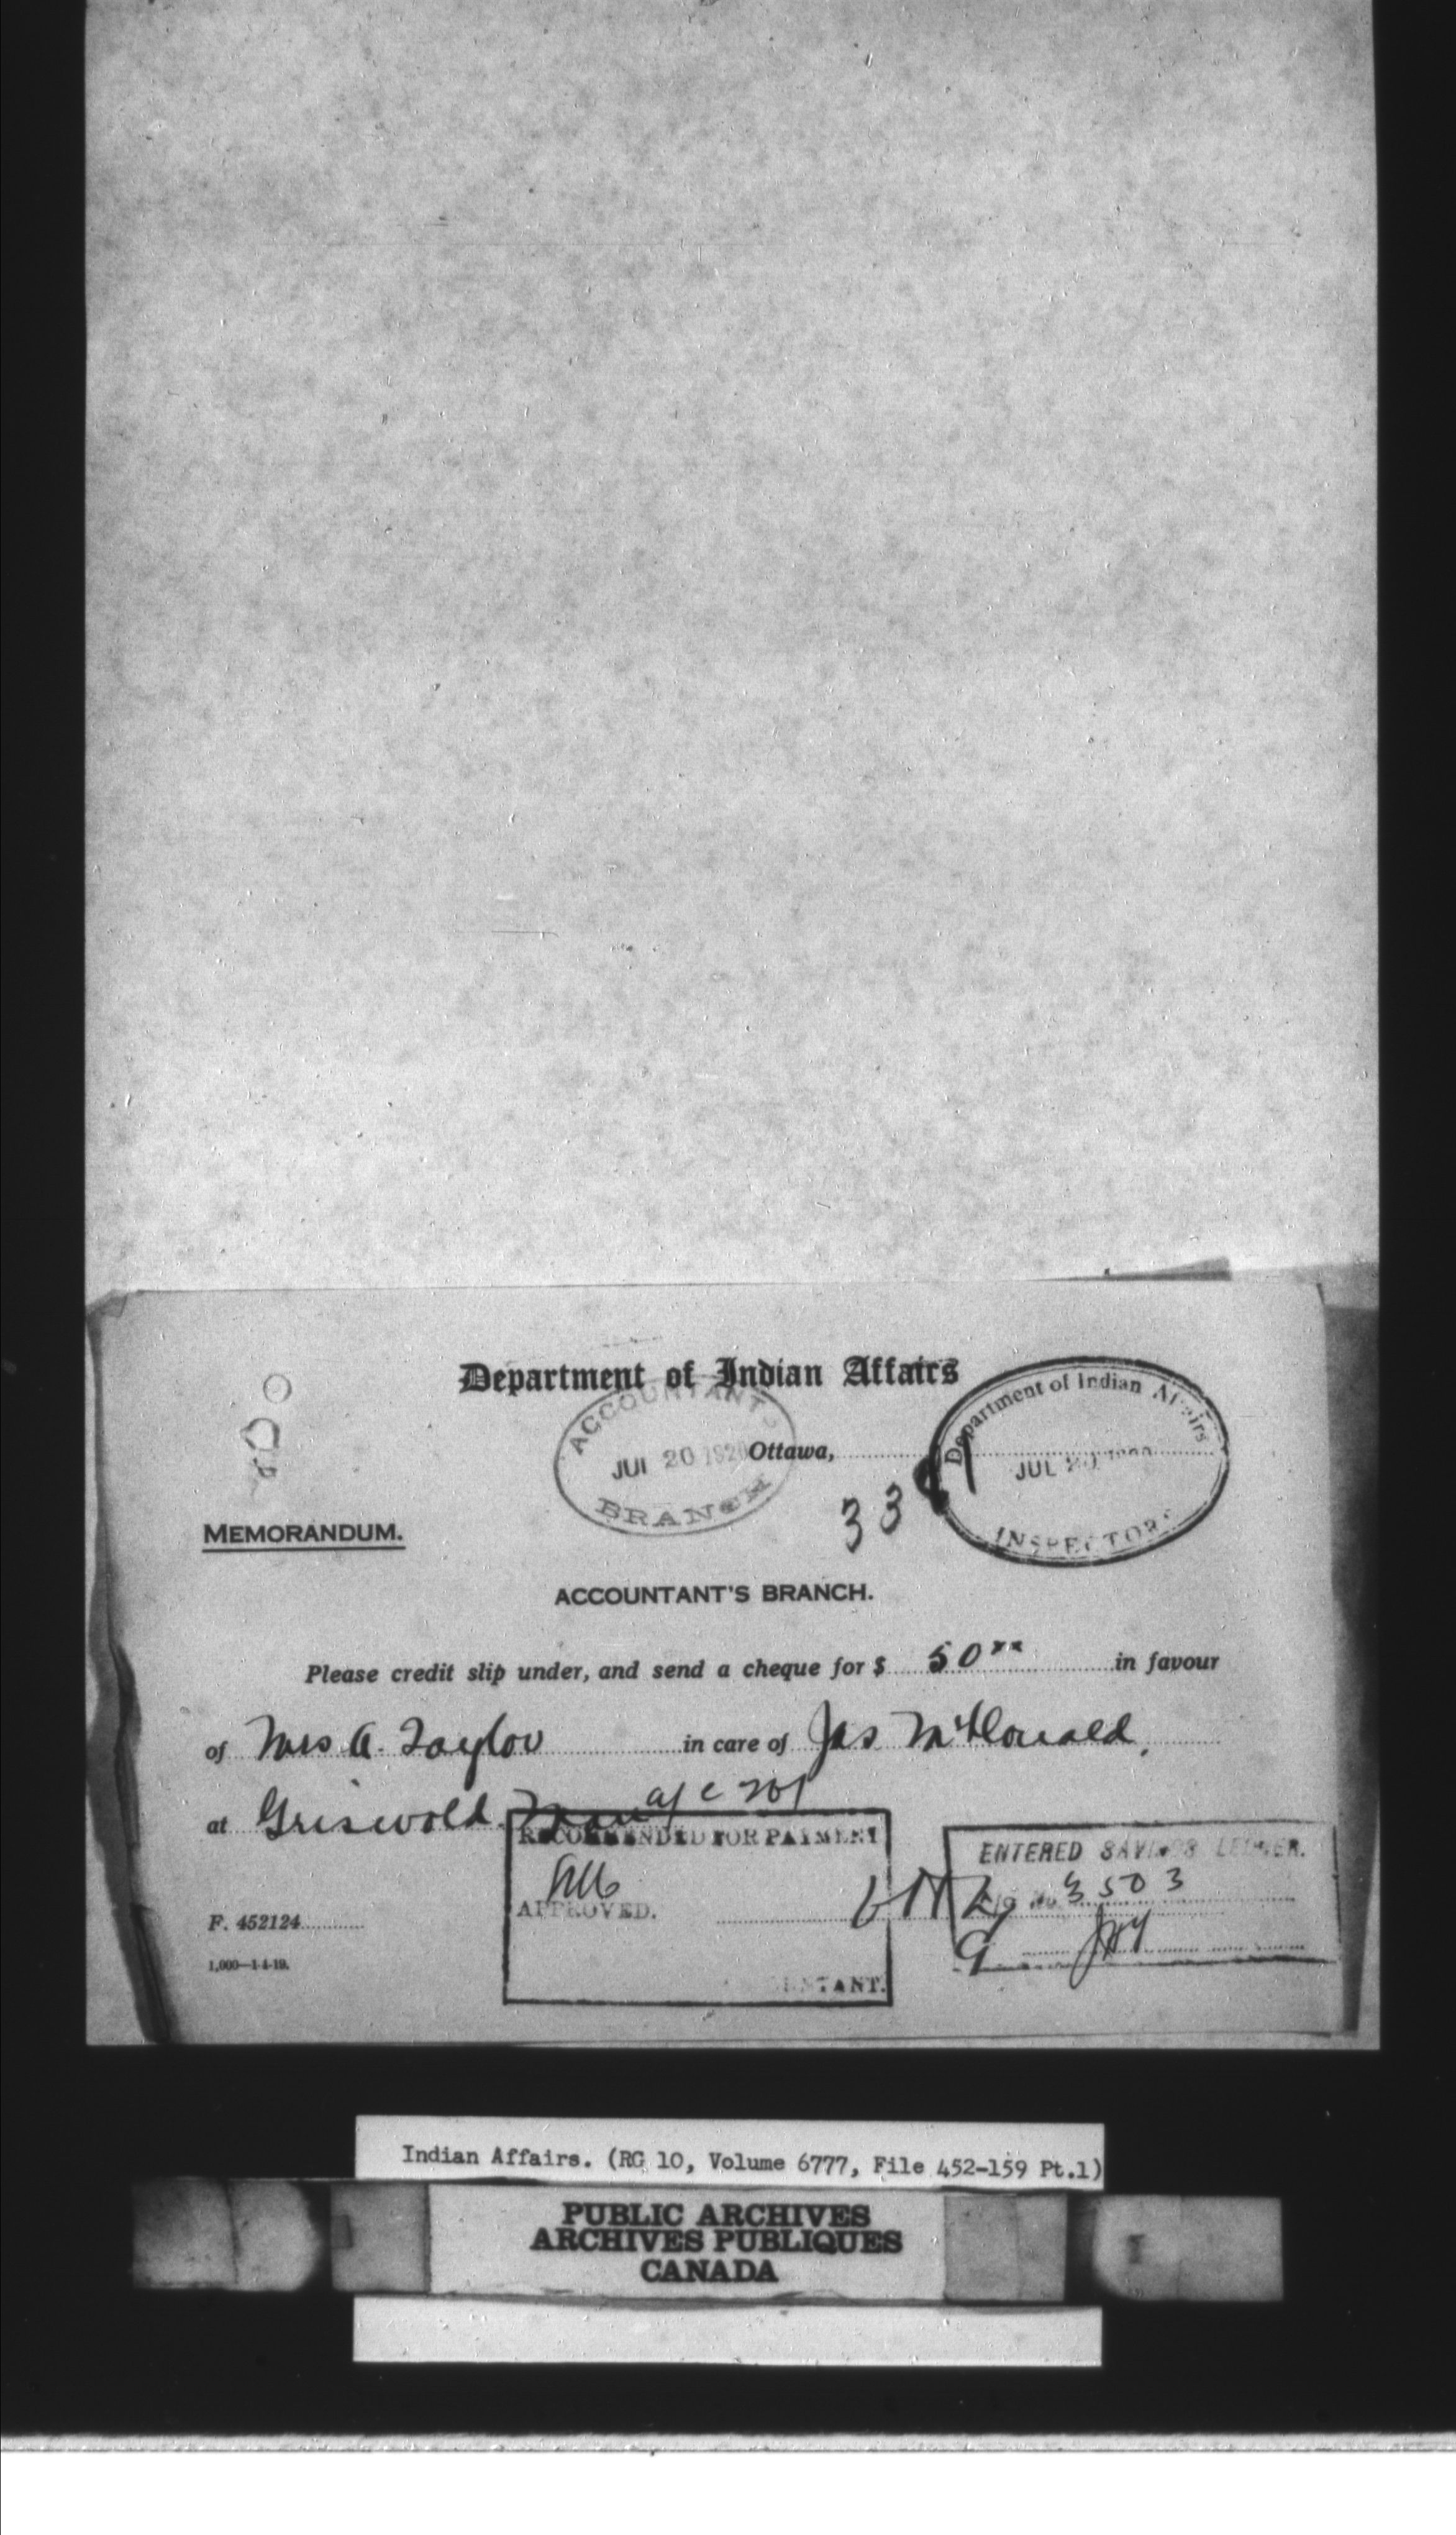 Department of Indian Affairs
ACCOUNTANT'S
JUL 20 1920
BRANCH
Ottawa,
Department of Indian Affairs
JUL 20 1920
INSPECTORS
MEMORANDUM.
ACCOUNTANT'S BRANCH.
Please credit slip under, and send a cheque for $ 50 in favour
of Mrs A. Taylor in care of Jas McDonald,
at Griswold. Man a/c 201
RECOMMENDED FOR PAYMENT
APPROVED.
ACCOUNTANT.
ENTERED SAVINGS LEDGER.
3503
F. 452124
1,000—1-4-19.
Indian Affairs. (RG 10, Volume 6777, File 452-159 Pt.1)
PUBLIC ARCHIVES
ARCHIVES PUBLIQUES
CANADA